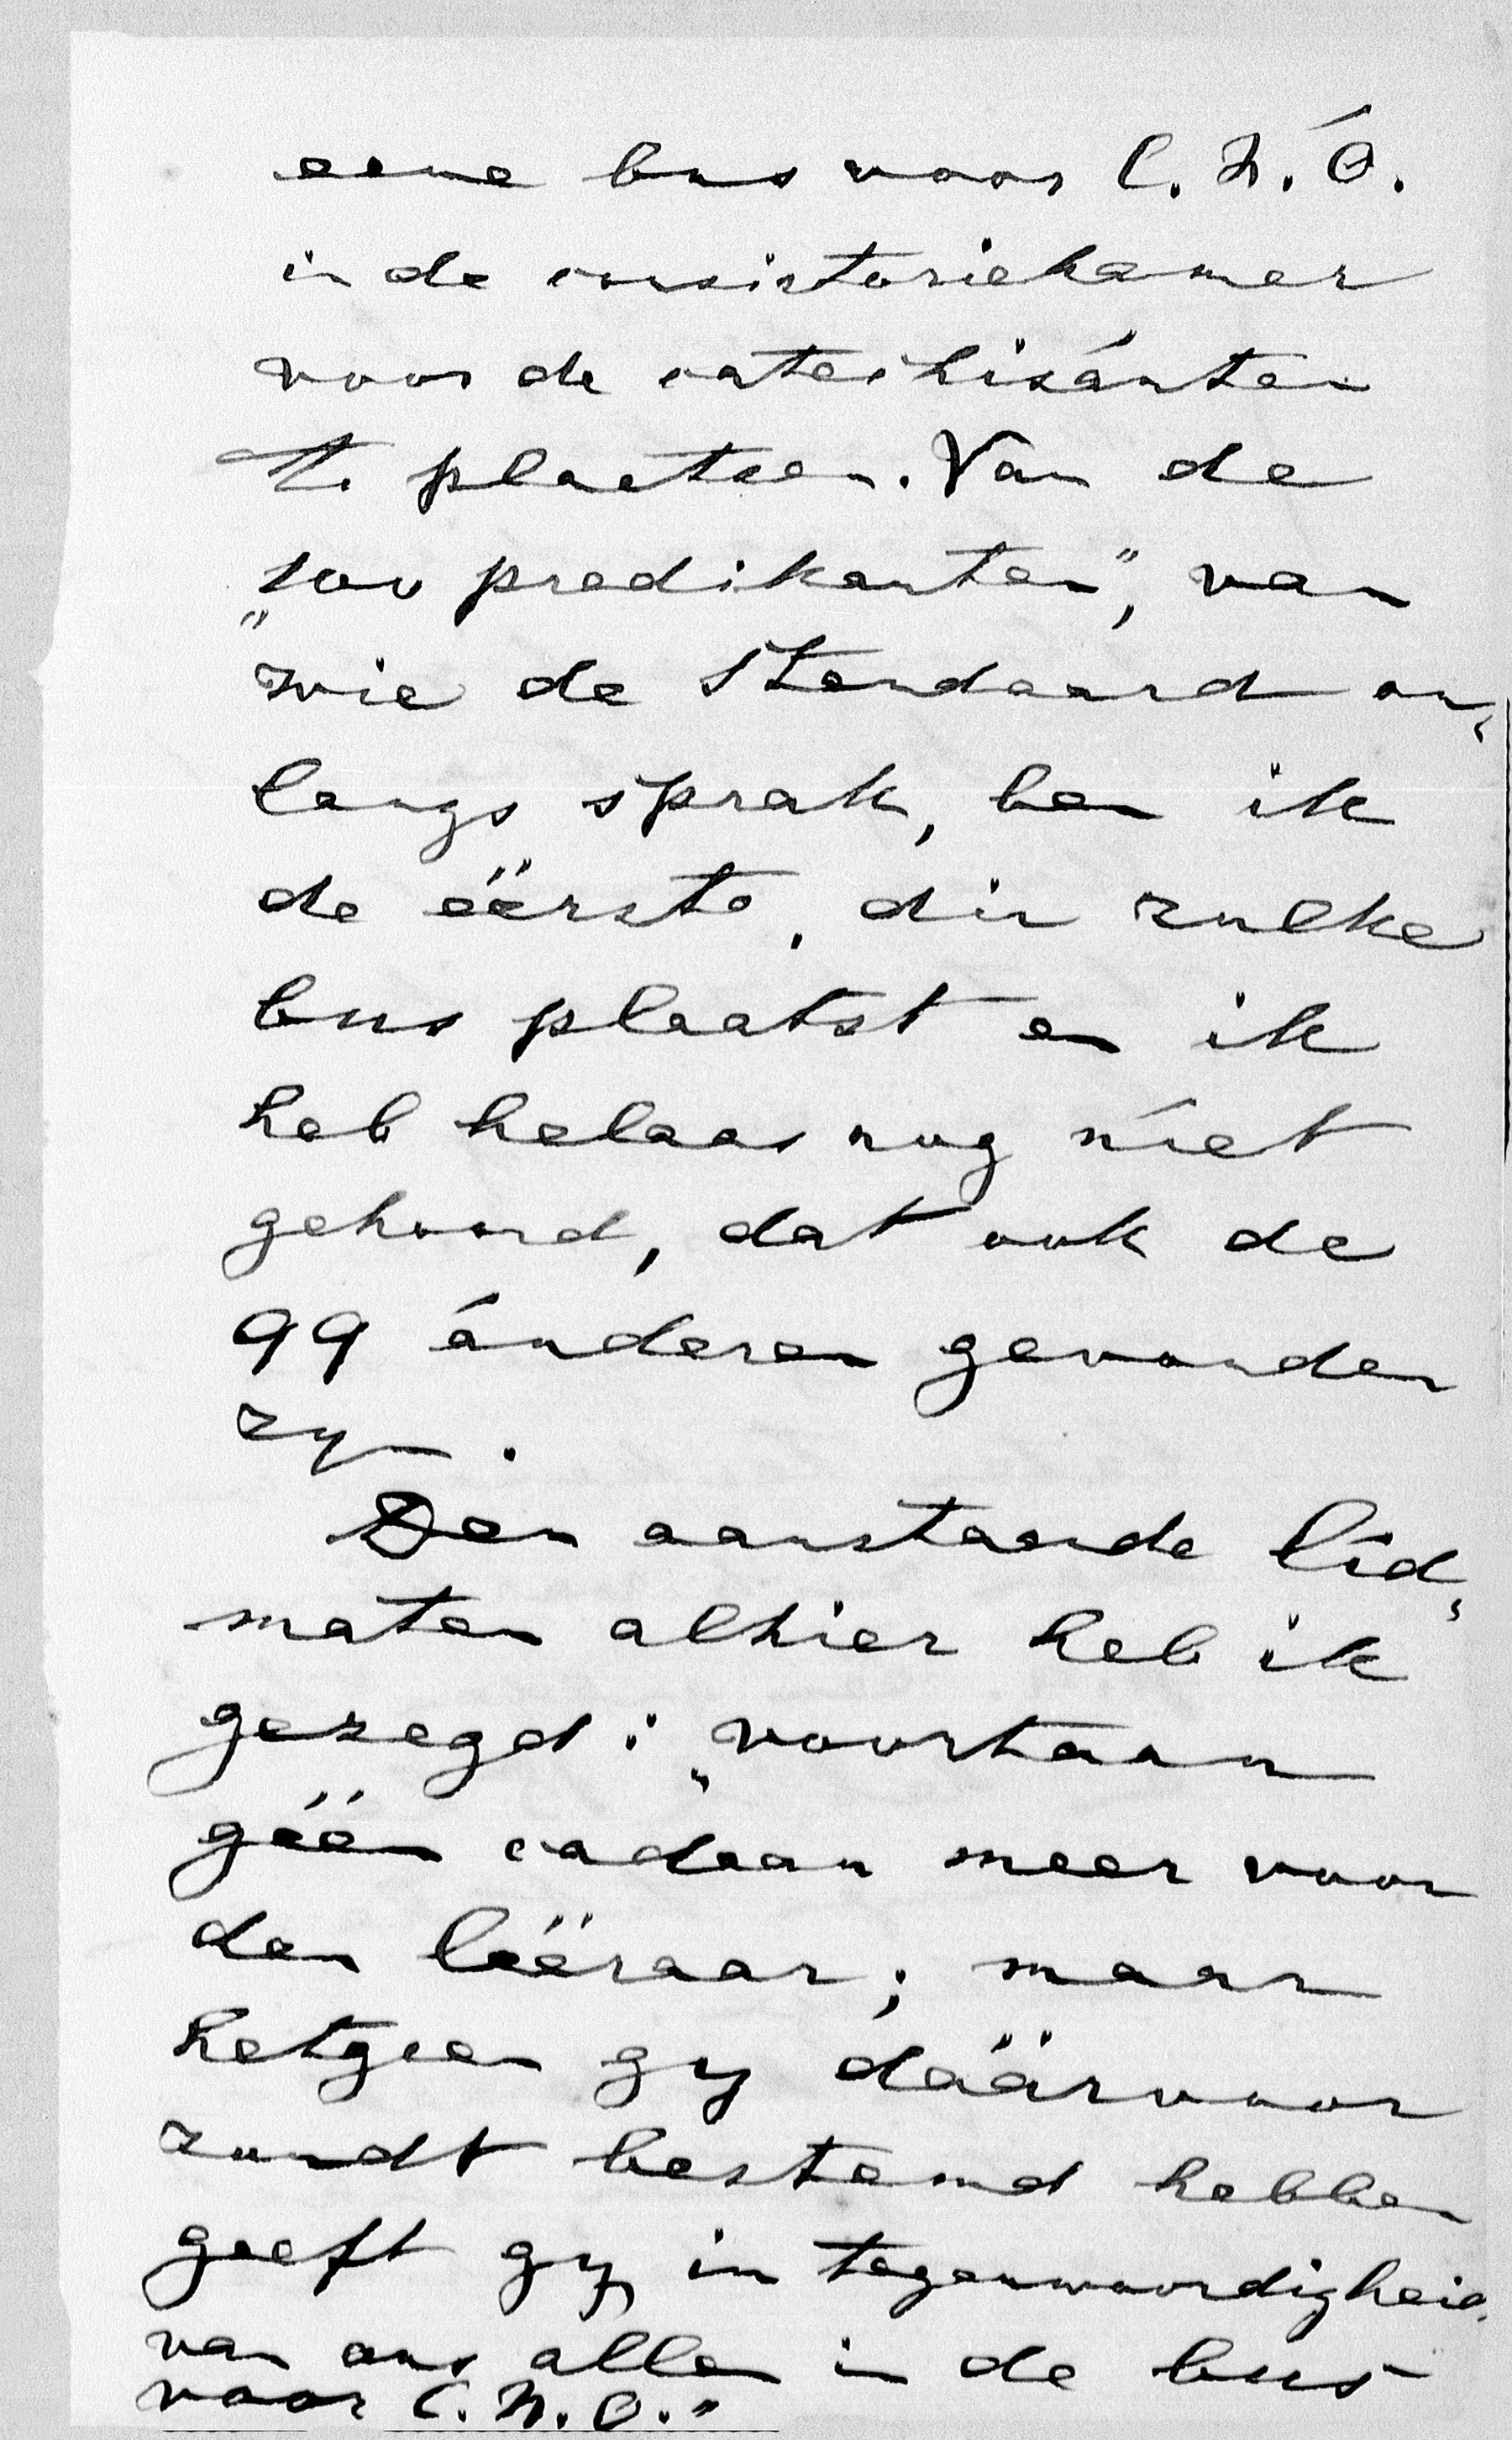 eene bus voor C. N. Ó.
in de consistoriekamer
voor de catechisánten
te plaatsen. Van de
„100 predikanten”, van
wie de Standaard on„
langs sprak, ben ik
de éérste, die zulke
bus plaatst en ik
heb helaas nog niet
gehoord, dat ook de
99 ánderen gevonden
zyn.
Den aanstaande lid„
maten alhier heb ik
gezegd: „voortaan
géén cadeau meer voor
den lééraar; maar
hetgeen gy dáárvoor
zoudt bestemd hebben
geeft gy in tegenwoordigheid
van ons allen in de bus
voor C. N. O.”